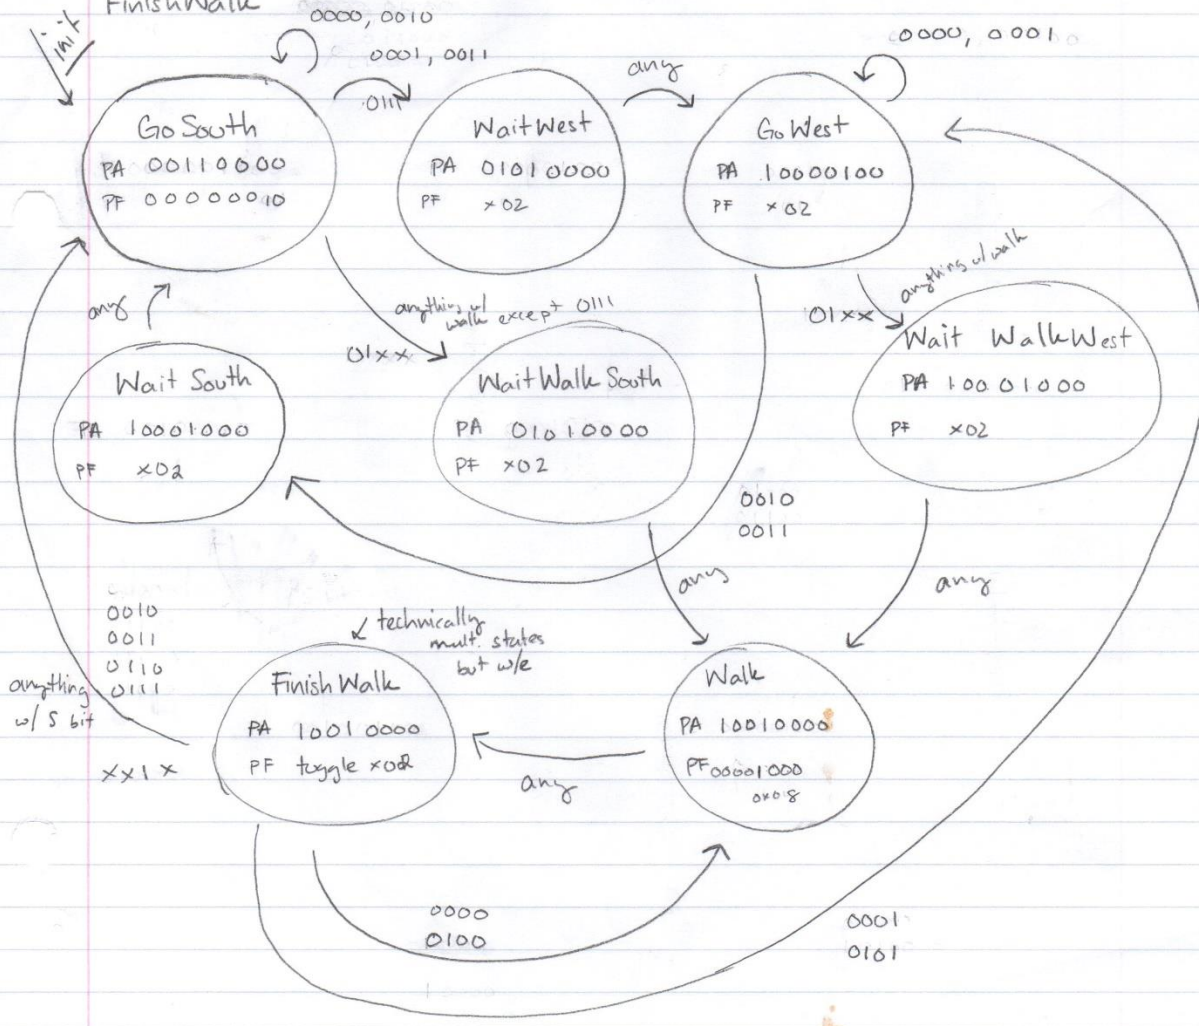 FinishWalk
init
0000, 0010
0001, 0011
0111
any
0000, 0001
GoSouth
PA 00110000
PF 00000010
WaitWest
PA 01010000
PF x02
GoWest
PA 10000100
PF x02
any
anything w/
walk except 0111
01xx
anything w/ walk
01xx
Wait South
PA 10001000
PF x02
WaitWalk South
PA 01010000
PF x02
Wait WalkWest
PA 10001000
PF x02
0010
0011
any
any
0010
0011
0110
0111
anything
w/ S bit
xx1x
technically
mult. states
but w/e
FinishWalk
PA 10010000
PF toggle x02
any
Walk
PA 10010000
PF 00001000
0x08
0000
0100
0001
0101